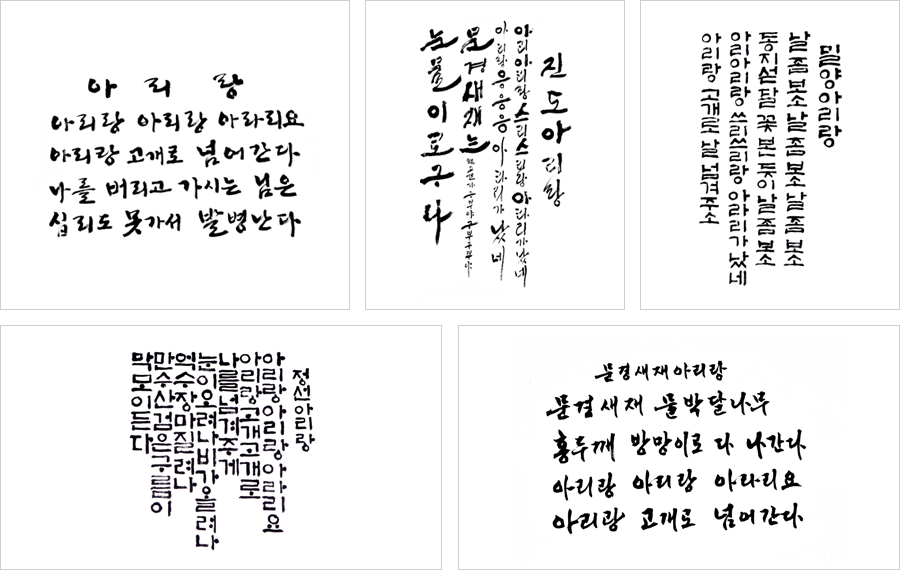 아 리 랑
아리랑 아리랑 아라리요
아리랑 고개로 넘어간다
나를 버리고 가시는 님은
십리도 못가서 발병난다
진도아리랑
아리아리랑스리스리랑아라리가났네
아리랑응응응아라리가났네
문경새재는
눈물이로구나
밀양아리랑
날 좀 보소 날 좀 보소 날 좀 보소
동지섣달 꽃 본 듯이 날 좀 보소
아리아리랑 쓰리쓰리랑 아라리가 났네
아리랑 고개로 날 넘겨주소
정선아리랑
아리랑아리랑아라리요
아리랑고개고개로
나를넘겨주게
눈이오려나비가올려나
억수장마질려나
만수산검은구름이
막모이든다
문경새재아리랑
문경새재 물박달나무
홍두깨 방망이로 다 나간다
아리랑 아리랑 아라리요
아리랑 고개로 넘어간다